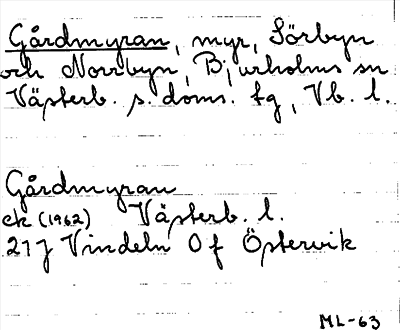 Gårdmyran, myr, Sörbyn
och Norrbyn, Bjurholms sn
Västerb. s. doms. fg, Vb. l.
Gårdmyran
ek (1962) Västerb. l.
21J Vindeln 0f Östervik
ML-63